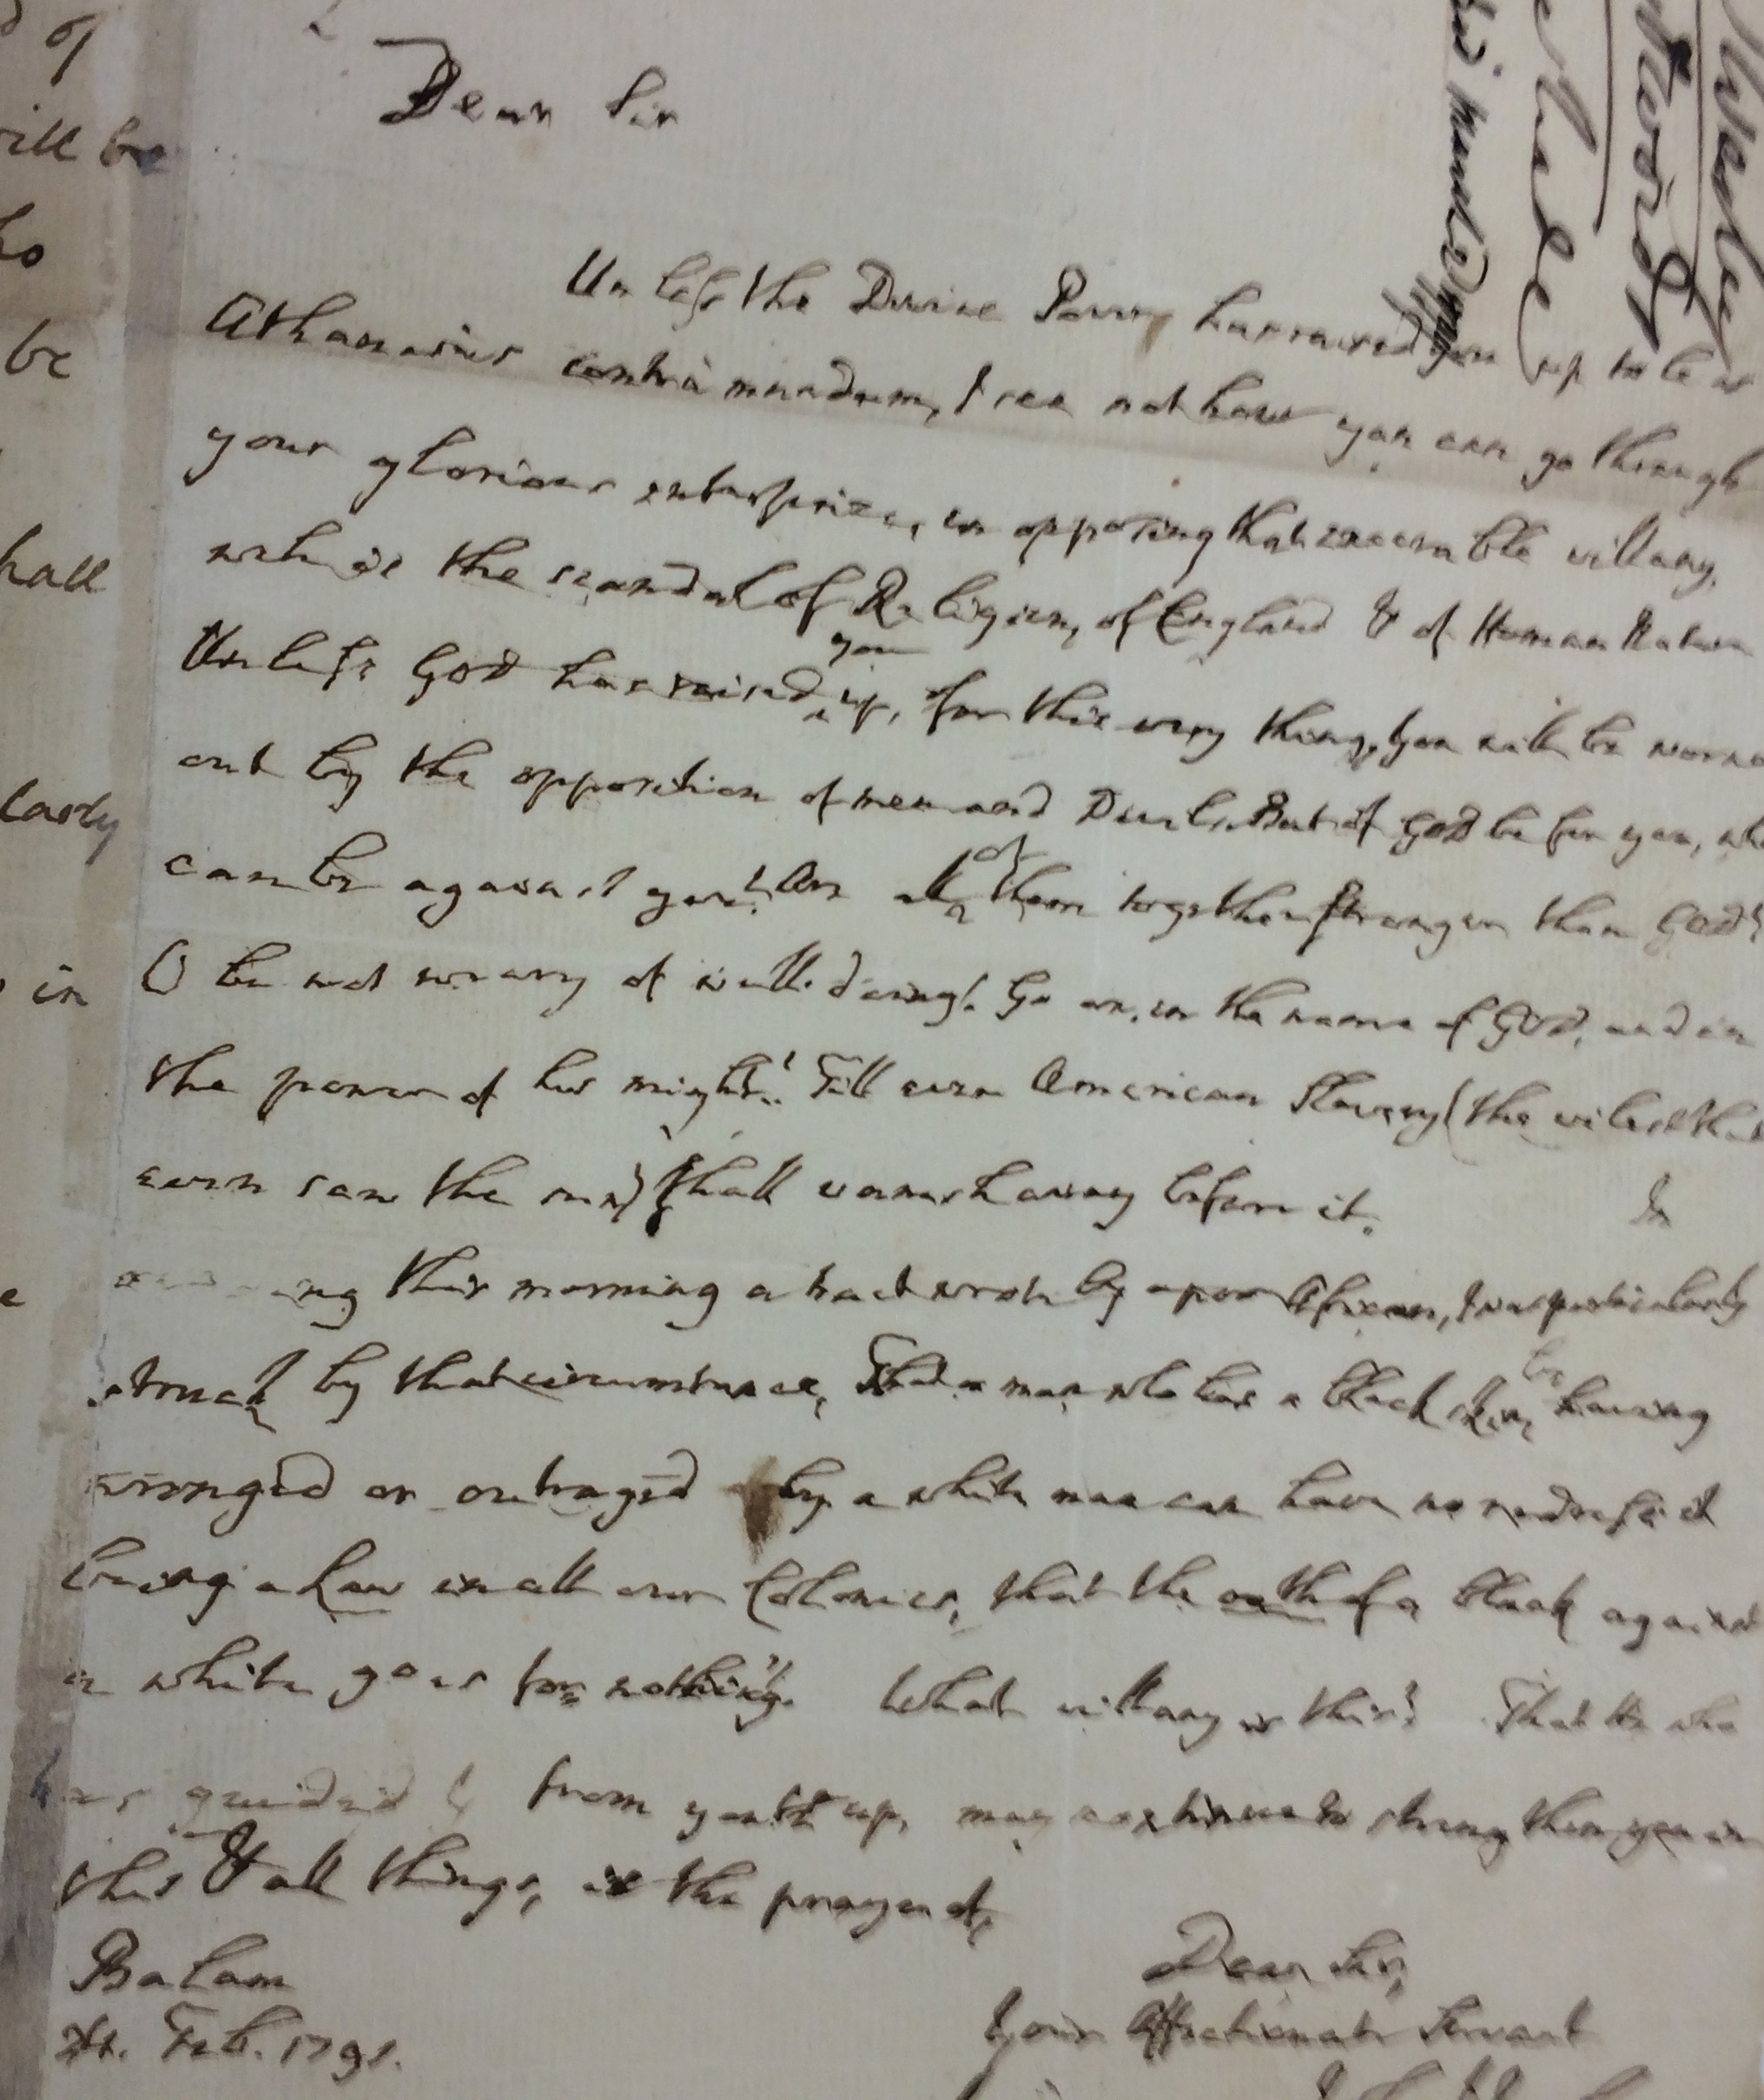 Dear Sir
Unless the Divine Power has raised you up to be as
Athanasius contra mundum, I see not how you can go through
your glorious enterprize, in opposing that execrable villany,
which is the scandal of Religion, of England & of Human Nature
Unless God has raised you up, for this very thing, you will be worne
out by the opposition of men and Devils. But if GOD be for you, who
can be against you? Are all of them together stronger than God?
O be not weary of well-doing! Go on, in the name of GOD, and in
the power of his might! Till even American Slavery (the vilest that
ever saw the sun) shall vanish away before it.
In
this morning a tract wrote by a poor African, I was particularly
struck by that circumstance, That a man who has a black skin, being
wronged or outraged by a white man can have no redress; it
being a Law in all our Colonies, that the oath of a black against
a white goes for nothing. What villany is this! That He who
has guided from youth up, may continue to strengthen you in
this & all things, is the prayer of,
Dear Sir,
Balam
24. Feb. 1791.
Your Affectionate Servant
of
ill be
ho
be
hall
larly
in
e
Wesley